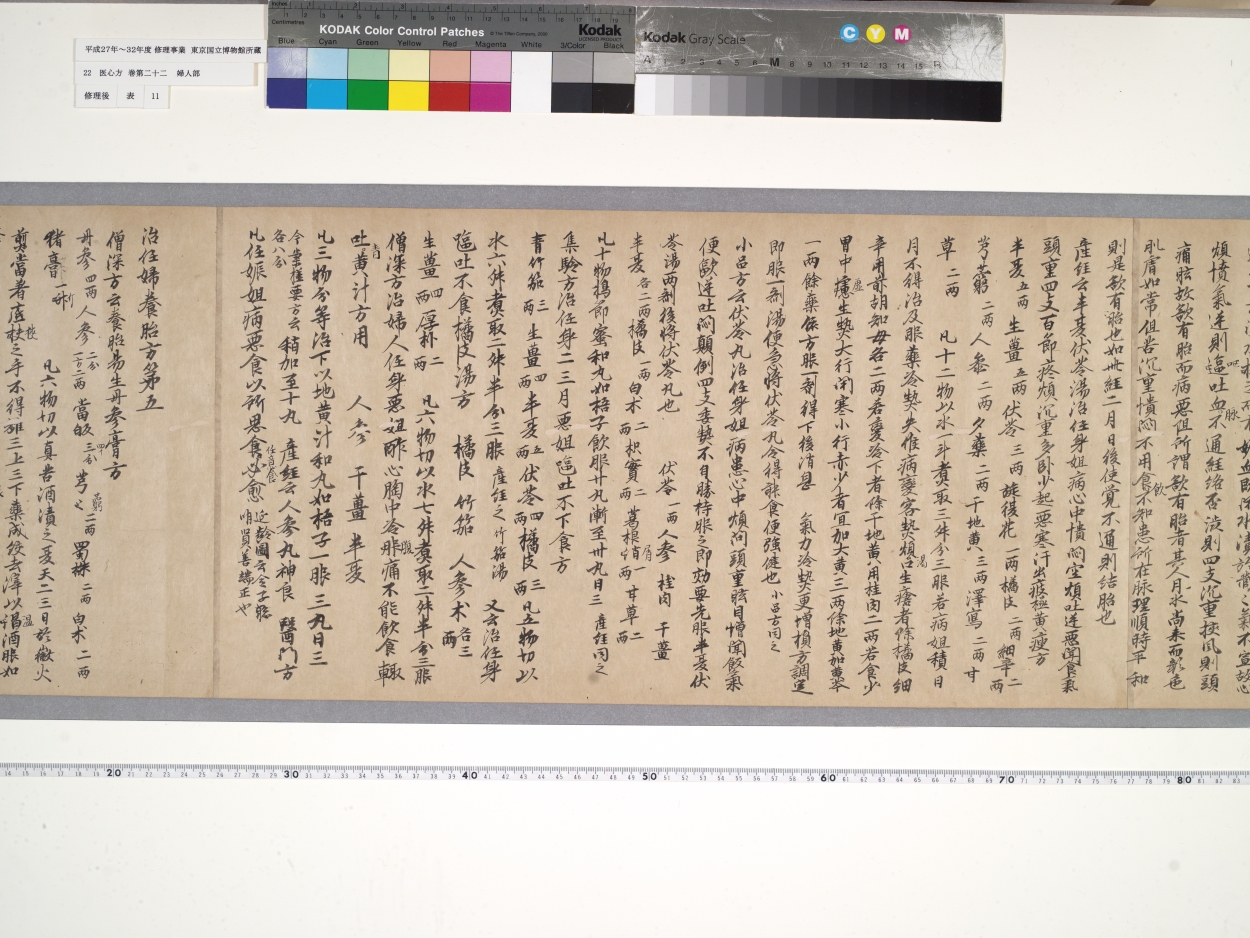 平成27年~32年度 修理事業 東京国立博物館所蔵
22 医心方 巻第二十二 婦人部
修理後 表 11
Inches
Centimetres
KODAK Color Control Patches
Kodak
LICENSED PRODUCT
Blue Cyan Green Yellow Red Magenta White 3/Color Black
Kodak Gray Scale
C Y M
A 1 2 3 4 5 6 M 8 9 10 11 12 13 14 15 B
煩憒氣逆則歐吐血不通經絡否澁則四支沉重挾風則頭
痛眩故欲有胎而病惡阻所謂欲有胎者其人月水尚来而顔色
肌膚如常但苦沉重憒悶不用食不知患所在脉理順時平和
則是欲有胎也如此經二月日後便覺不通則結胎也
産經云半夏伏苓湯治任身阻病心中憒悶空煩吐逆惡聞食氣
頭重四支百節疼煩沉重多卧少起惡寒汗出疲極黄瘦方
半夏五兩 生薑五兩 伏苓三兩 旋復花一兩 橘皮二兩 細辛二兩
芎藭二兩 人參二兩 夕藥二兩 干地黄三兩 澤寫二兩 甘
草二兩 凡十二物以水一斗煮取三升分三服若病阻積日
月不得治及服藥冷熱失候病變客熱煩渇口生瘡者除橘皮細
辛用前胡知母各二兩若變冷下者除干地黄用桂肉二兩若食少
胃中虚生熱大行閇塞小行赤少者宜加大黄三兩除地黄加黄芩
一兩餘藥依方服一剤得下後消息 氣力冷熱更増損方調定
即服一剤湯便急將伏苓丸令得能食便強健也小品方同之
小品方云伏苓丸治任身阻病患心中煩悶頭重眩目憎聞飯氣
便歐逆吐悶顛倒四支委熱不自勝持服之即効要先服半夏伏
苓湯兩剤後將伏苓丸也 伏苓一兩 人參 桂肉 干薑
半夏各二兩 橘皮一兩 白朮二兩 枳實二兩 葛根一兩 甘草二兩
凡十物搗篩蜜和丸如梧子飲服廾丸漸至卅丸日三産經同之
集驗方治任身二三月惡阻歐吐不下食方
青竹筎三兩 生薑四兩 半夏五兩 伏苓四兩 橘皮三兩 凡五物切以
水六升煮取二升半分三服産經之竹筎湯 又云治任身
歐吐不食橘皮湯方 橘皮 竹筎 人參 朮各三兩
生薑四兩 厚朴二兩 凡六物切以水七升煮取二升半分三服
僧深方治婦人任身惡阻酢心胸中冷腹痛不能飲食輙
吐青黄汁方用 人參 干薑 半夏
凡三物分等治下以地黄汁和丸如梧子一服三丸日三
今案極要方云各八分稍加至十丸 産經云人參丸神良 醫門方
凡任娠阻病惡食以所思食任意食必愈
治任婦養胎方第五
僧深方云養胎易生丹參膏方
丹參四兩 人參二分 當歸 芎藭二兩 蜀椒二兩 白朮二兩
猪膏一斤 凡六物切以真苦酒漬之夏天二三日於微火
煎當著底攪之手不得離三上三下藥成絞去滓以温酒服如